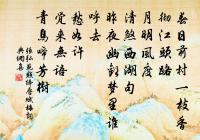 春日前村一枝香
徹江頭路
月明風度
清煞西湖句
昨夜幽歡夢里誰
呼去
愁如許
覺來無語
青鳥啼芳樹
張弘范點絳唇賦梅詞